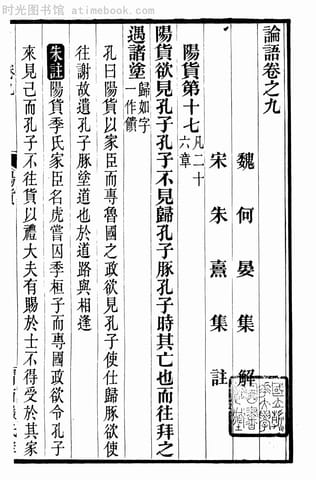 时光图书馆 atimebook.com
論語卷之九
魏何晏集解
宋朱熹集註
陽貨第十七凡二十
六章
陽貨欲見孔子孔子不見歸孔子豚孔子時其亡也而往拜之
遇諸塗歸如字
一作饋
孔曰陽貨以家臣而專魯國之政欲見孔子使仕歸豚欲使
往謝故遺孔子豚塗道也於道路與相逢
朱註陽貨季氏家臣名虎嘗囚季桓子而專國政欲令孔子
來見己而孔子不往貨以禮大夫有賜於士不得受於其家